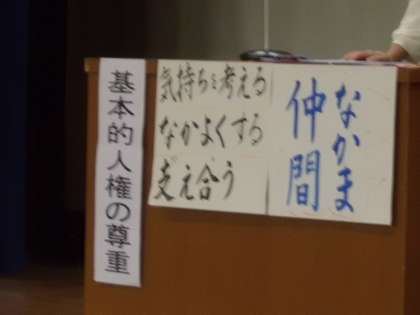 なかま
仲間
気持ちを考える
なかよくする
支え合う
基本的人権の尊重